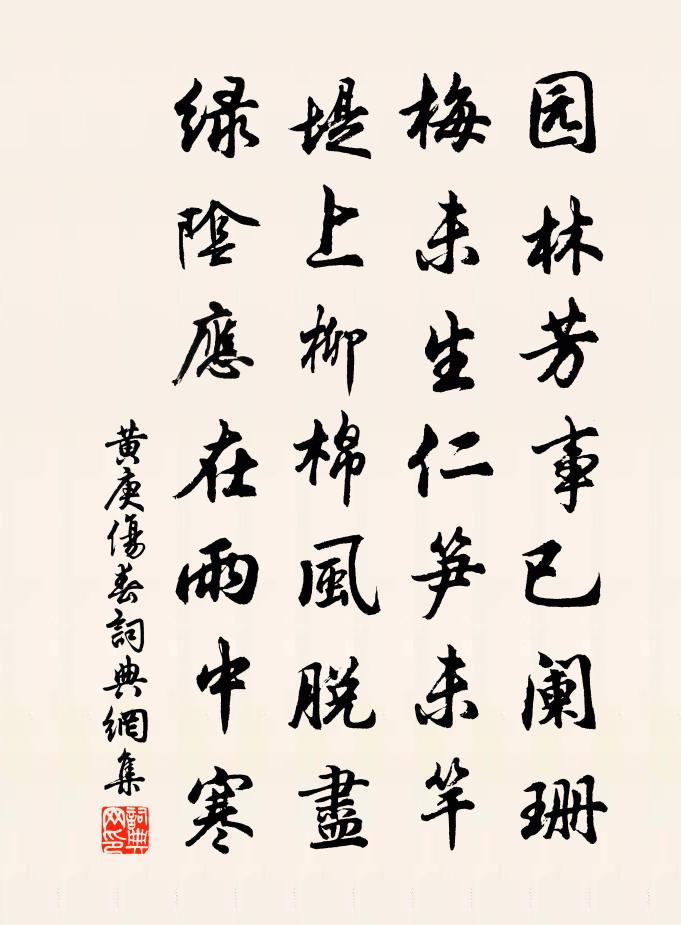 园林芳事已阑珊
梅未生仁笋未竿
堤上柳棉風脱盡
绿陰應在雨中寒
黄庚傷春詞典網集
詞典网印